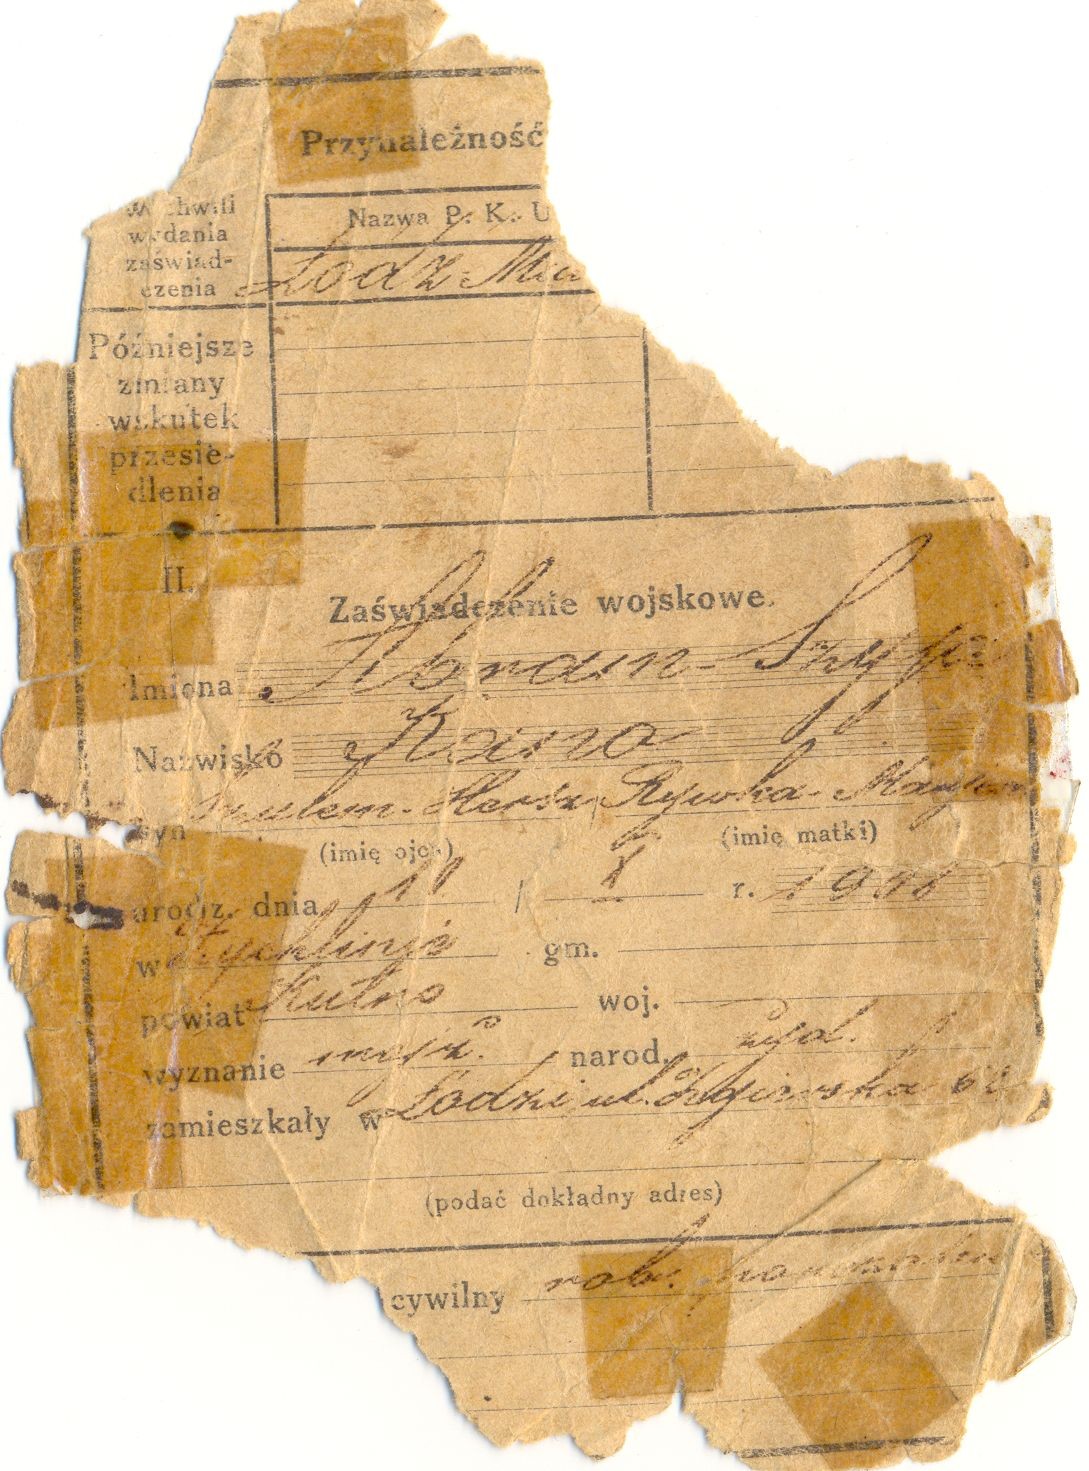 Przynależność
W chwili
wydania
zaświad-
czenia
Nazwa P. K. U
Łodz - Mia
Późniejsze
zmiany
wskutek
przesie-
dlenia
II.
Zaświadczenie wojskowe.
Imiona Abram - Szyja
Nazwisko
syn Szulem - Hersz, Rywka -
(imię ojca) (imię matki)
urodz. dnia / X r.
w Żychlinie gm.
powiat Kutno woj.
wyznanie mojż. narod. żyd.
zamieszkały w Łodzi ul. Zgierska
(podać dokładny adres)
cywilny rob.